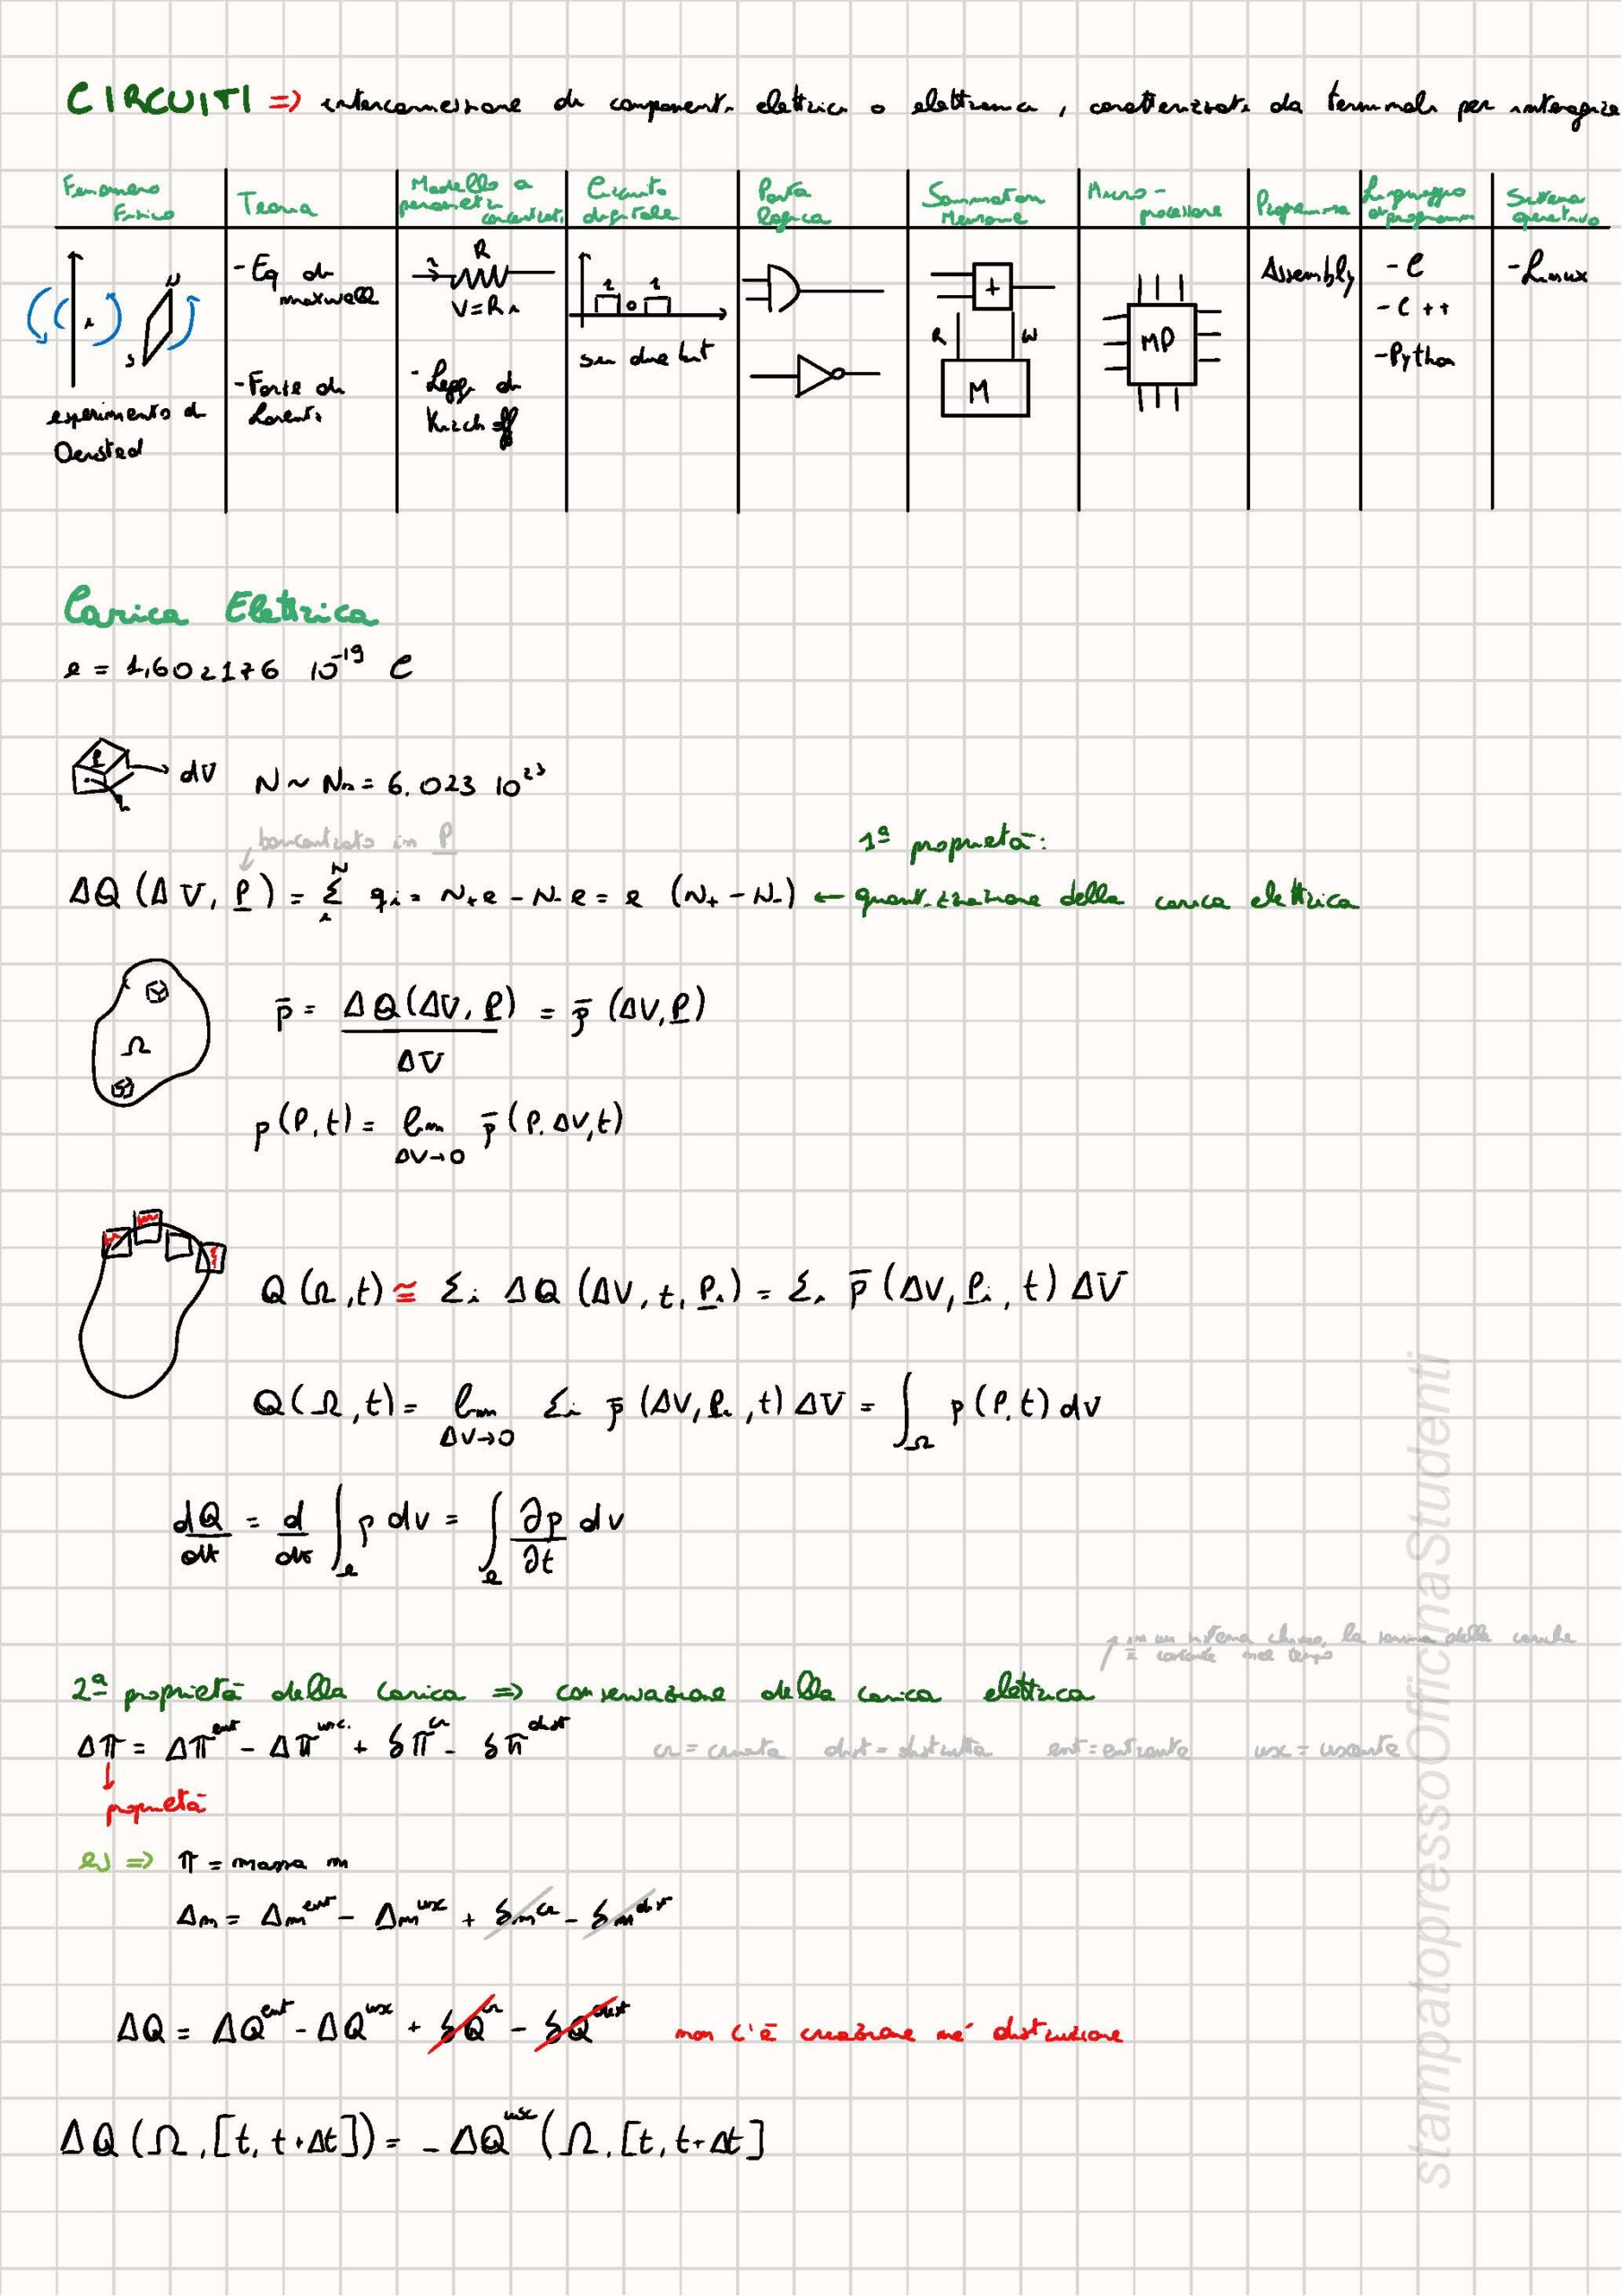 CIRCUITI => interconnessione di componenti elettrici o elettronici, caratterizzati da terminali per interagire
Fenomeno Fisico
Teoria
Modello a parametri concentrati
Circuito digitale
Porta logica
Sommatori Memorie
Micro-processore
Programma
Linguaggio di programm
Sistema operativo
i
N
S
esperimento di Oersted
- Eq di maxwell
- Forze di Lorentz
i R
V=Ri
- Leggi di Kirchoff
1 0 1
su due bit
+
R W
M
MP
Assembly
- C
- C ++
- Python
- Linux
Carica Elettrica
e = 1,602176 10^-19 C
dV N ~ Nₐ = 6.023 10^23
concentrato in P
1ª proprietà:
ΔQ (ΔV, P) = Σ_i^N q_i = N₊e - N₋e = e (N₊ - N₋) ← quantizzazione della carica elettrica
Ω
ρ̄ = ΔQ(ΔV, P) / ΔV = ρ̄ (ΔV, P)
ρ(P, t) = lim_{ΔV→0} ρ̄ (P, ΔV, t)
Q(Ω, t) ≅ Σ_i ΔQ (ΔV, t, P_i) = Σ_i ρ̄ (ΔV, P_i, t) ΔV
Q(Ω, t) = lim_{ΔV→0} Σ_i ρ̄ (ΔV, P_i, t) ΔV = ∫_Ω ρ(P, t) dv
dQ/dt = d/dt ∫ ρ dv = ∫ ∂ρ/∂t dv
in un sistema chiuso, la somma delle cariche è costante nel tempo
2ª proprietà della carica => conservazione della carica elettrica
Δπ = Δπ^ent - Δπ^usc. + δπ^cr - δπ^dist cr = creata dist = distrutta ent = entrante usc = uscente
proprietà
es => π = massa m
Δm = Δm^ent - Δm^usc + δm^cr - δm^dist
ΔQ = ΔQ^ent - ΔQ^usc + δQ^cr - δQ^dist non c'è creazione né distruzione
ΔQ(Ω, [t, t+Δt]) = - ΔQ^usc (Ω, [t, t+Δt]
stampatopressoOfficinaStudenti